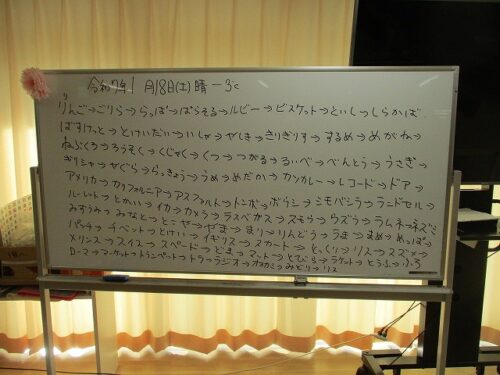 令和7年1月18日(土)晴 -3℃
りんご→ごりら→らっぱ→ぱらそる→ルビー→ビスケット→といし→しらかば
ばすけっと→とけいだい→いしゃ→やしき→きりぎりす→するめ→めがね→
ねぶくろ→ろうそく→くじゃく→くつ→つがる→るいべ→べんとう→うさぎ→
ぎりシャ→やぐら→らっきょう→うめ→めだか→カツカレー→レコード→ドア→
アメリカ→カリフォルニア→アスファルト→トンボ→ボウシ→シモバシラ→ランドセル→
ルーレット→とかい→イカ→カメラ→ラスベガス→スモウ→ウズラ→ラムネ→ネズミ
みずうみ→みなと→とこや→やま→まり→りんどう→うま→まめ→めっぱ→
パッチ→イベント→とけい→イギリス→スカート→とっくり→リス→スズメ→
メリンス→スイス→スペード→どま→マット→とびら→ラケット→とうふ→ふろ
ローマ→マーケット→トランペット→トラ→ラジオ→オオカミ→みどり→リス